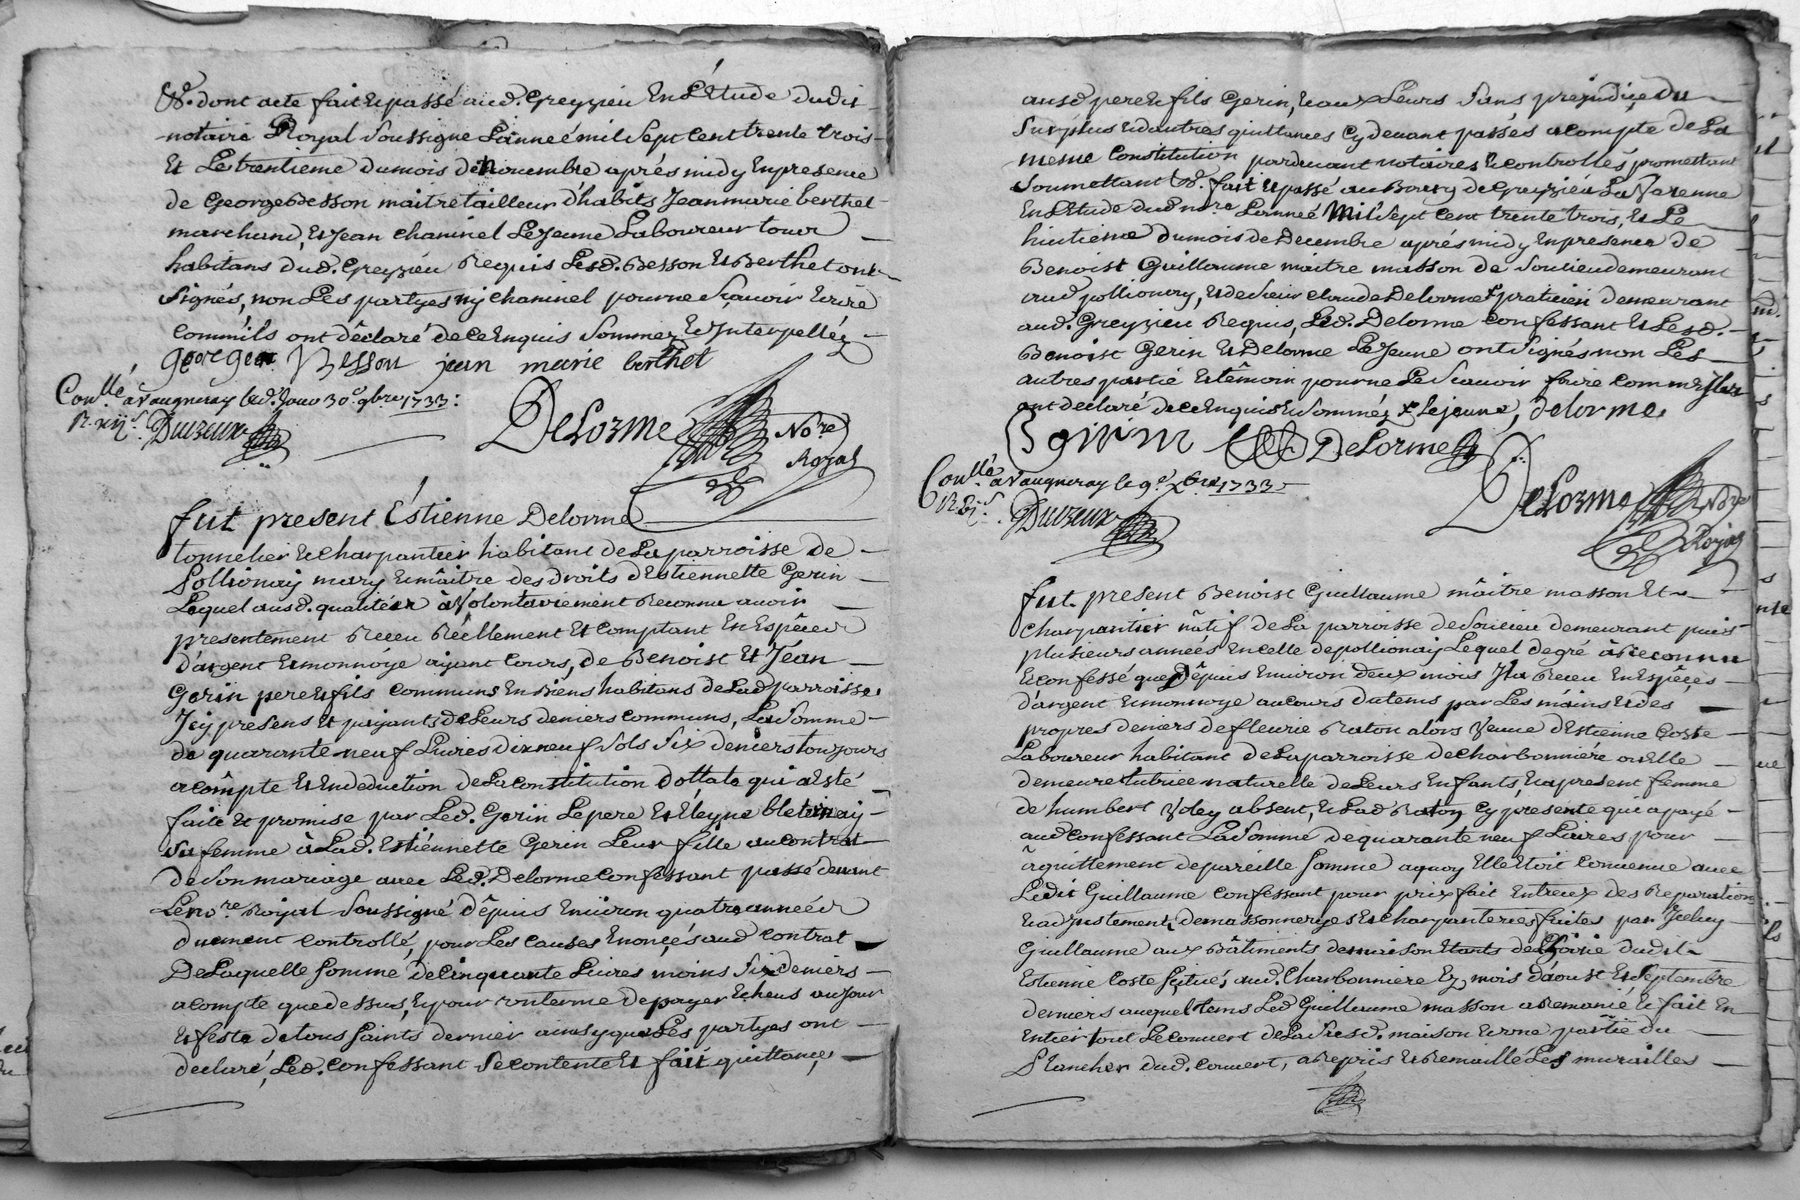 &. dont acte fait et passé aud. Greyzieu En L'Etude dudit
notaire Royal soussigné L'année mil sept cent trente trois
Et Le trentieme du mois de Novembre aprés midy En presence
de George Besson maitre tailleur d'habits Jean marie berthet
marchand, Et Jean chaninel Le Jeune Laboureur tous
habitans dud. Greyziéu Requis Lesd. Besson Et Berthet ont
signés, non Les partyes ny chaninel pour ne sçavoir Ecrire
comm'ils ont dêclaré de ce Enquis sommez Et Interpelléz
george Besson jean marie berthet
Con.llé a Vaugneray led. Jour 30.e 9bre 1733:
R. xij s. Duzeux
DeLorme No.re
Royal
fut present Éstienne Delorme
tonnelier Et charpantier habitant de La parroisse de
Pollionay mary Et mâitre des droits d'Estiennette Gerin
Lequel ausd. qualitéz à Volontairement Reconnu avoir
presentement Receu Réellement Et comptant En Espêces
d'argent Et monnoye ayant cours, de Benoist Et Jean
Gerin pere Et fils communs En Biens habitans de Lad parroisse
Jcy presens Et payants de Leurs deniers communs, La somme
de quarante neuf Livres dix neuf sols six deniers toujours
a cômpte Et En deduction de La constitution dottale qui a Esté
faite Et promise par Led. Gerin Le pere Et Eleyne
sa femme à Lad. Estiénnette Gerin Leur fille au contrat
de son mariage avec Led. Delorme confessant passé devant
Le no.re Royal soussigné d'êpuis Environ quatre années
duement controllé, pour Les causes Enoncés aud contrat
De Laquelle somme de cinquante Livres moins six deniers
a compte que dessus, Et pour un terme de payer Echeus au Jour
Et feste de tous saints dernier ainsy que Les partyes ont
declaré, Led. confessant se contente Et fait quittance,
ausd pere Et fils Gerin, Et aux Leurs sans prejudice du
surplus Et d'autres quittances cy devant passés a compte de La
mesme constitution pardevant notaires Et controllés, promettant
soumettant &. fait Et passé au Bourg de Greyziéu La Varenne
En L'Etude dud no.re L'année Mil sept cent trente trois, Et Le
huitieme du mois de Decembre aprés midy En presence de
Benoist Guillaume maitre masson de soucieu demeurant
aud pollionay, Et de sieur claude Delorme praticien demeurant
aud. Greyzieu Requis, Led. Delorme confessant Et Lesd.
Benoist Gerin Et Delorme Le Jeune ont signés non Les
autres partie Et têmoin pour ne Le sçavoir faire comme Ils
ont declaré de ce Enquis Et sommés Le jeune, delorme
B gerin DeLorme
Con.llé a Vaugneray le 9.e Xbre 1733
Duzeux
DeLorme No.re
Royal
fut present Benoist Guillaume mâitre masson Et
charpantier nâtif de La parroisse de Soucieu demeurant puis
plusieurs années En celle de pollionay Lequel de gré à Reconnu
Et confessé que dêpuis Environ deux mois Jl a Receu En Espêces
d'argent Et monnoye au cours du tems par Les mâins Et des
propres deniers de fleurie Raton alors Veuve d'Estienne Coste
Laboureur habitant de La parroisse de charbonniére ou Elle
demeure tutrice naturelle de Leurs Enfants, Et a present femme
de humbert Voley absent, Et Lad Raton cy presente qui a payé
aud confessant La somme de quarante neuf Livres pour
âquittement de pareille somme a quoy Elle Etoit convenue avec
Ledit Guillaume confessant pour prix fait Entreux des Reparations
Et adjustements de massonneryes Et charpanteries faites par Jceluy
Guillaume aux Bâtiments de maison Etants de L'hoirie dudit
Estienne Coste scitués aud. Charbonniere Ez mois d'aoust Et septembre
derniers auquel tems Led Guillaume masson a Remanié Et fait En
Entier tout Le couvert de La susd. maison Et une partie du
Plancher dud. couvert, a Repris Et Remaillé Les murailles